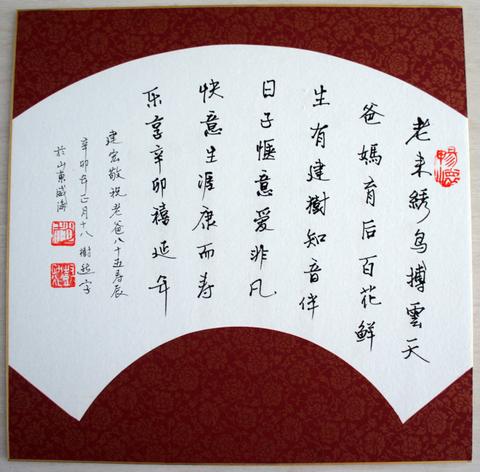 老来綉鸟搏雲天
爸媽育后百花鲜
生有建樹知音伴
日子惬意爱非凡
快意生涯康而寿
乐享辛卯禧延年
建宏敬祝老爸八十五寿辰
辛卯年正月十八 樹字
於山東威海